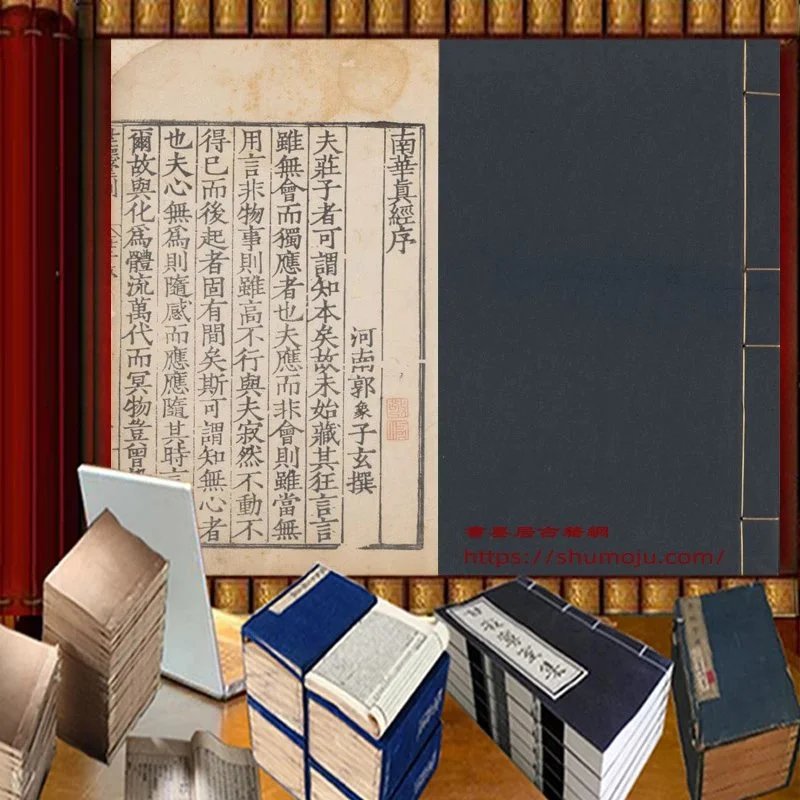 南華眞經序
河南郭象子玄撰
夫莊子者可謂知本矣故未始藏其狂言言
雖無會而獨應者也夫應而非會則雖當無
用言非物事則雖高不行與夫寂然不動不
得已而後起者固有間矣斯可謂知無心者
也夫心無爲則隨感而應應隨其時言
爾故與化爲體流萬代而冥物豈曾
書墨居古籍網
https://shumoju.com/